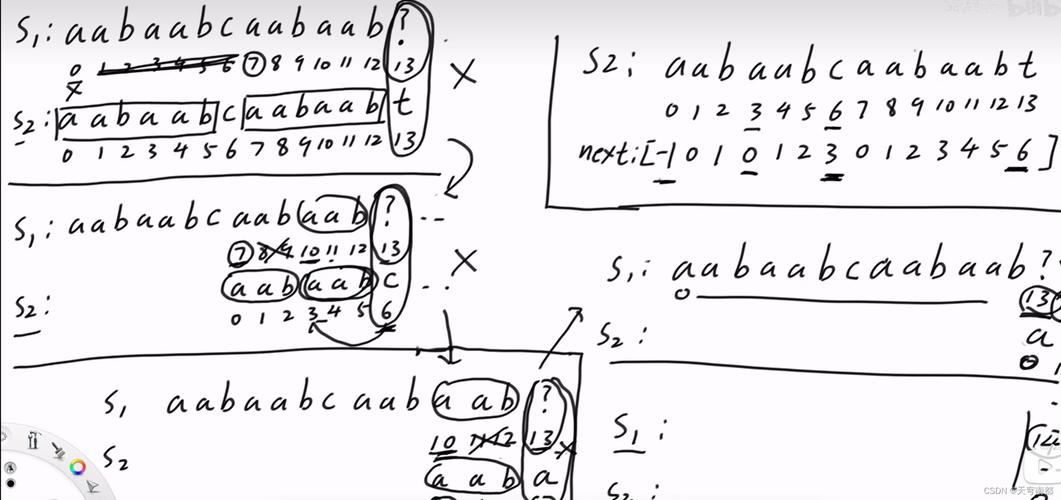 S₁: aabaabcaabaab?
0 1 2 3 4 5 6 7 8 9 10 11 12 13
S₂: aabaabcaabaabt
0 1 2 3 4 5 6 7 8 9 10 11 12 13
S₁: aabaabcaabaab? --
7 8 9 10 11 12 13
S₂: aabaabc
0 1 2 3 4 5 6
S₁ aabaabcaabaab?
10 11 12 13
S₂ aaba
S₂: aabaabcaabaabt
0 1 2 3 4 5 6 7 8 9 10 11 12 13
next:[-1 0 1 0 1 2 3 0 1 2 3 4 5 6]
S₁: aabaabcaabaab?
0 13
S₂: a
0
S₁:
14
CSDN @天穹南都